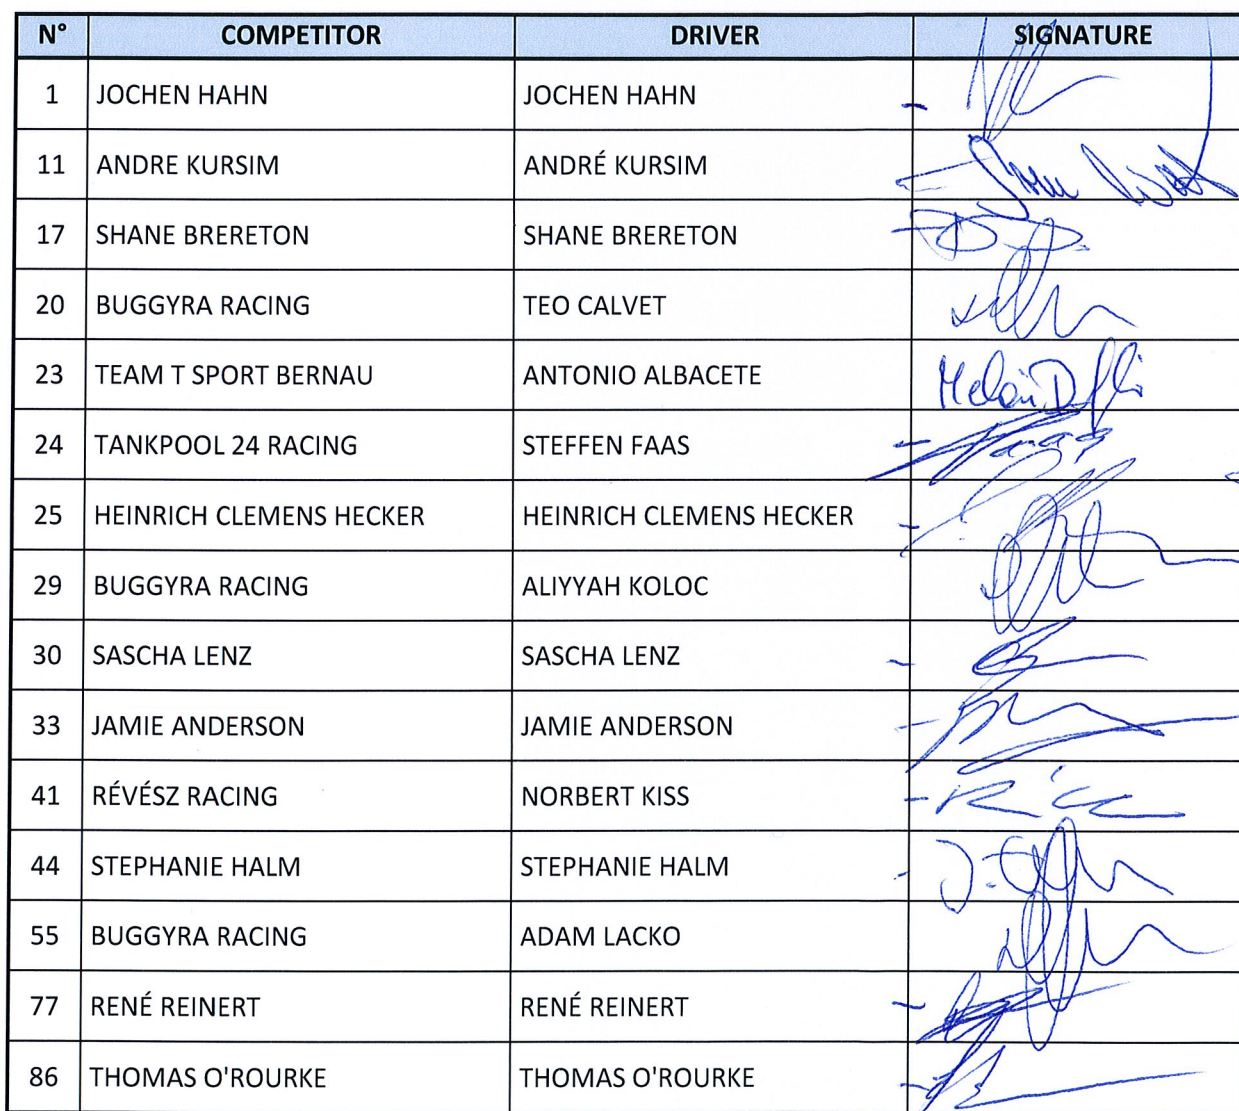 N° COMPETITOR DRIVER SIGNATURE
1 JOCHEN HAHN JOCHEN HAHN
11 ANDRE KURSIM ANDRÉ KURSIM
17 SHANE BRERETON SHANE BRERETON
20 BUGGYRA RACING TEO CALVET
23 TEAM T SPORT BERNAU ANTONIO ALBACETE
24 TANKPOOL 24 RACING STEFFEN FAAS
25 HEINRICH CLEMENS HECKER HEINRICH CLEMENS HECKER
29 BUGGYRA RACING ALIYYAH KOLOC
30 SASCHA LENZ SASCHA LENZ
33 JAMIE ANDERSON JAMIE ANDERSON
41 RÉVÉSZ RACING NORBERT KISS
44 STEPHANIE HALM STEPHANIE HALM
55 BUGGYRA RACING ADAM LACKO
77 RENÉ REINERT RENÉ REINERT
86 THOMAS O'ROURKE THOMAS O'ROURKE